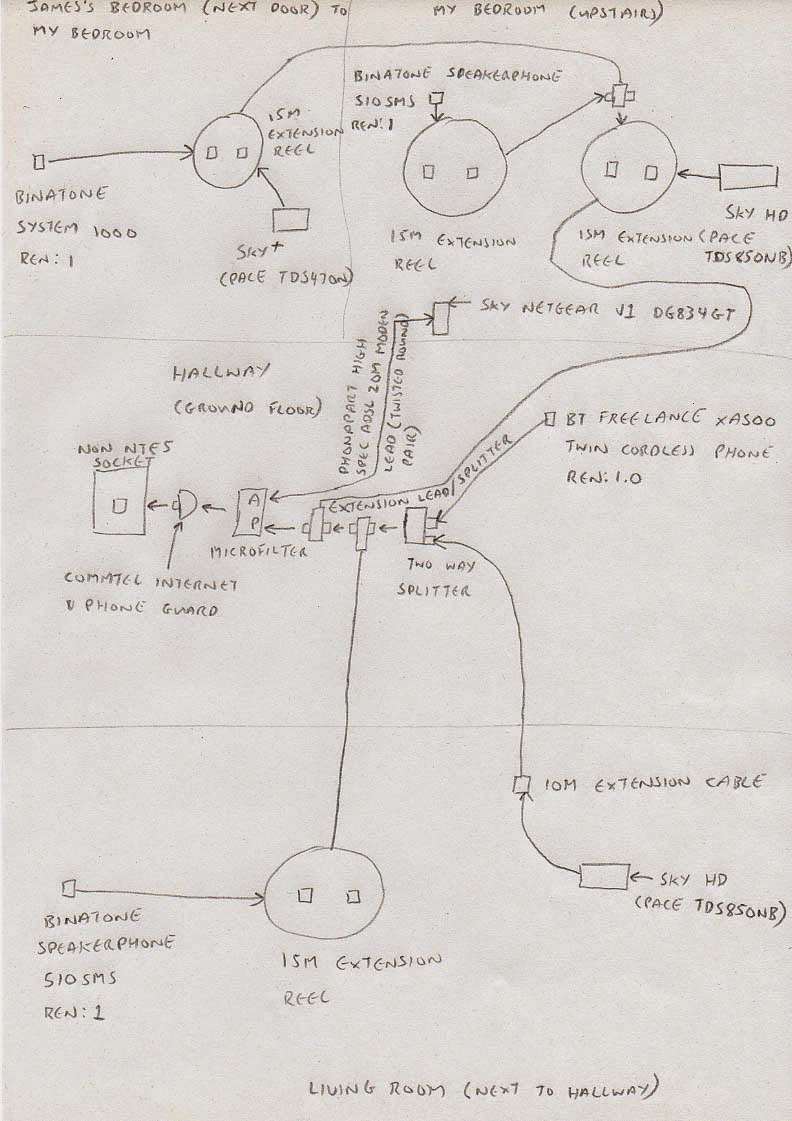 JAMES'S BEDROOM (NEXT DOOR) TO
MY BEDROOM
MY BEDROOM (UPSTAIRS)
BINATONE SPEAKERPHONE
510SMS
REN: 1
15M
EXTENSION
REEL
BINATONE
SYSTEM 1000
REN: 1
SKY+
(PACE TDS470N)
15M EXTENSION
REEL
15M EXTENSION
REEL
SKY HD
(PACE
TDS850NB)
SKY NETGEAR V1 DG834GT
PHONAPART HIGH
SPEC ADSL 20M MODEM
LEAD (TWISTED ROUND)
PAIR)
HALLWAY
(GROUND FLOOR)
NON NTE5
SOCKET
A
P
MICROFILTER
COMMTEL INTERNET
& PHONE GUARD
EXTENSION LEAD/SPLITTER
BT FREELANCE XA500
TWIN CORDLESS PHONE
REN: 1.0
TWO WAY
SPLITTER
10M EXTENSION CABLE
SKY HD
(PACE TDS850NB)
BINATONE
SPEAKERPHONE
510SMS
REN: 1
15M EXTENSION
REEL
LIVING ROOM (NEXT TO HALLWAY)